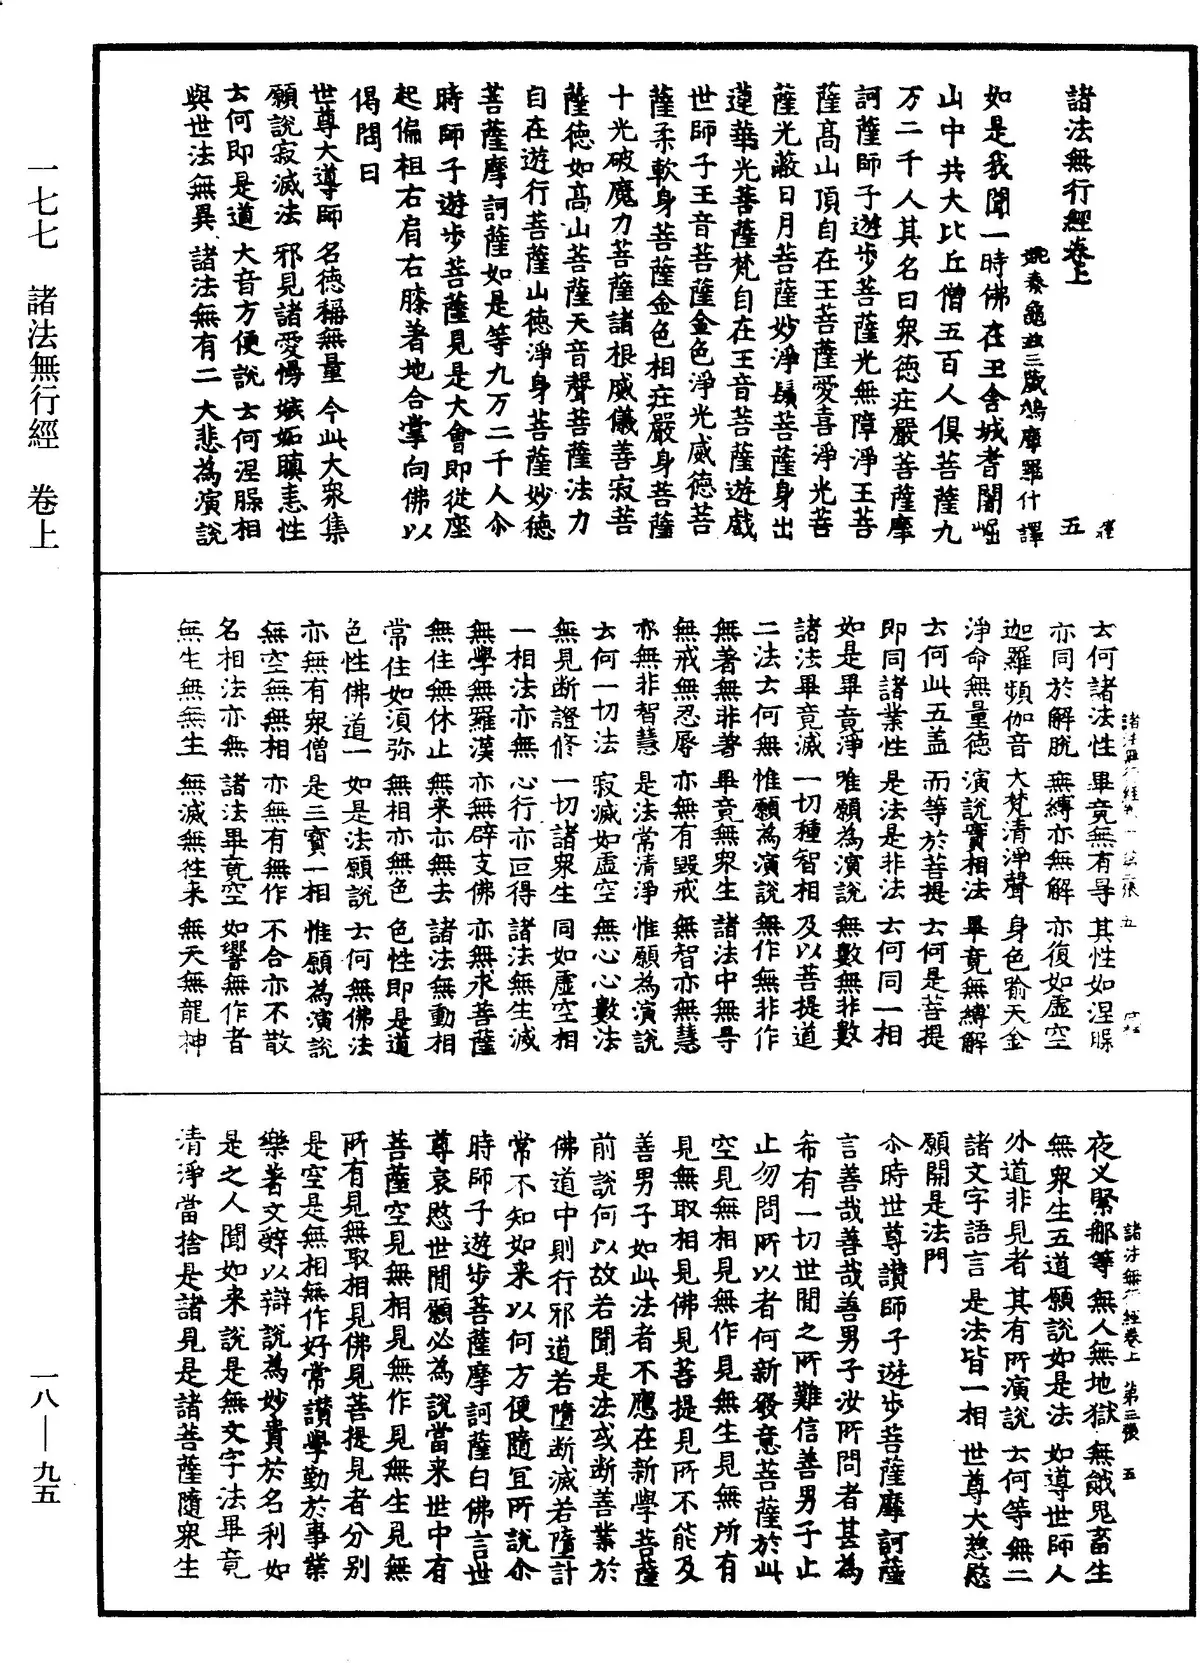 諸法無行經卷上
五
姚秦龜茲三藏鳩摩羅什譯
如是我聞一時佛在王舍城耆闍崛
山中共大比丘僧五百人俱菩薩九
万二千人其名曰眾德莊嚴菩薩摩
訶薩師子遊步菩薩光無障淨王菩
薩高山頂自在王菩薩愛喜淨光菩
薩光蔽日月菩薩妙淨鬚菩薩身出
蓮華光菩薩梵自在王音菩薩遊戲
世師子王音菩薩金色淨光威德菩
薩柔軟身菩薩金色相莊嚴身菩薩
十光破魔力菩薩諸根威儀善寂菩
薩德如高山菩薩天音聲菩薩法力
自在遊行菩薩山德淨身菩薩妙德
菩薩摩訶薩如是等九万二千人尒
時師子遊步菩薩見是大會即從座
起偏袒右肩右膝著地合掌向佛以
偈問曰
世尊大導師　名德稱無量　今此大眾集
願說寂滅法　邪見諸愛慢　嫉妬瞋恚性
去何即是道　大音方便說　去何涅槃相
與世法無異　諸法無有二　大悲為演說
去何諸法性　畢竟無有㝵　其性如涅槃
亦同於解脫　無縛亦無解　亦復如虛空
迦羅頻伽音　大梵清淨聲　身色踰天金
淨命無量德　演說實相法　畢竟無縛解
去何此五蓋　而等於菩提　去何是菩提
即同諸業性　是法是非法　去何同一相
如是畢竟淨　唯願為演說　無數無非數
諸法畢竟滅　一切種智相　及以菩提道
二法去何無　惟願為演說　無作無非作
無著無非著　畢竟無眾生　諸法中無㝵
無戒無忍辱　亦無有毀戒　無智亦無慧
亦無非智慧　是法常清淨　惟願為演說
去何一切法　寂滅如虛空　無心心數法
無見斷證修　一切諸眾生　同如虛空相
一相法亦無　心行亦叵得　諸法無生滅
無學無羅漢　亦無辟支佛　亦無求菩薩
無住無休止　無来亦無去　諸法無動相
常住如須弥　無相亦無色　色性即是道
色性佛道一　如是法願說　去何無佛法
亦無有眾僧　是三寶一相　惟願為演說
無空無無相　亦無有無作　不合亦不散
名相法亦無　諸法畢竟空　如響無作者
無生無無生　無滅無往来　無天無龍神
夜叉緊那等　無人無地獄　無餓鬼畜生
無眾生五道　願說如是法　如導世師人
外道非見者　其有所演說　去何等無二
諸文字語言　是法皆一相　世尊大慈愍
願開是法門
尒時世尊讃師子遊步菩薩摩訶薩
言善哉善哉善男子汝所問者甚為
希有一切世間之所難信善男子止
止勿問所以者何新發意菩薩於此
空見無相見無作見無生見無所有
見無取相見佛見菩提見所不能及
善男子如此法者不應在新學菩薩
前說何以故若聞是法或斷善業於
佛道中則行邪道若墮斷滅若墮計
常不知如来以何方便隨冝所說尒
時師子遊步菩薩摩訶薩白佛言世
尊哀愍世間願必為說當来世中有
菩薩空見無相見無作見無生見無
所有見無取相見佛見菩提見者分別
是空是無相無作好常讃學勤於事業
樂著文辭以辯說為妙貴於名利如
是之人聞如来說是無文字法畢竟
清淨當捨是諸見是諸菩薩隨眾生
諸法無行經卷上　第三張　五
一七七　諸法無行經　卷上
一八—九五